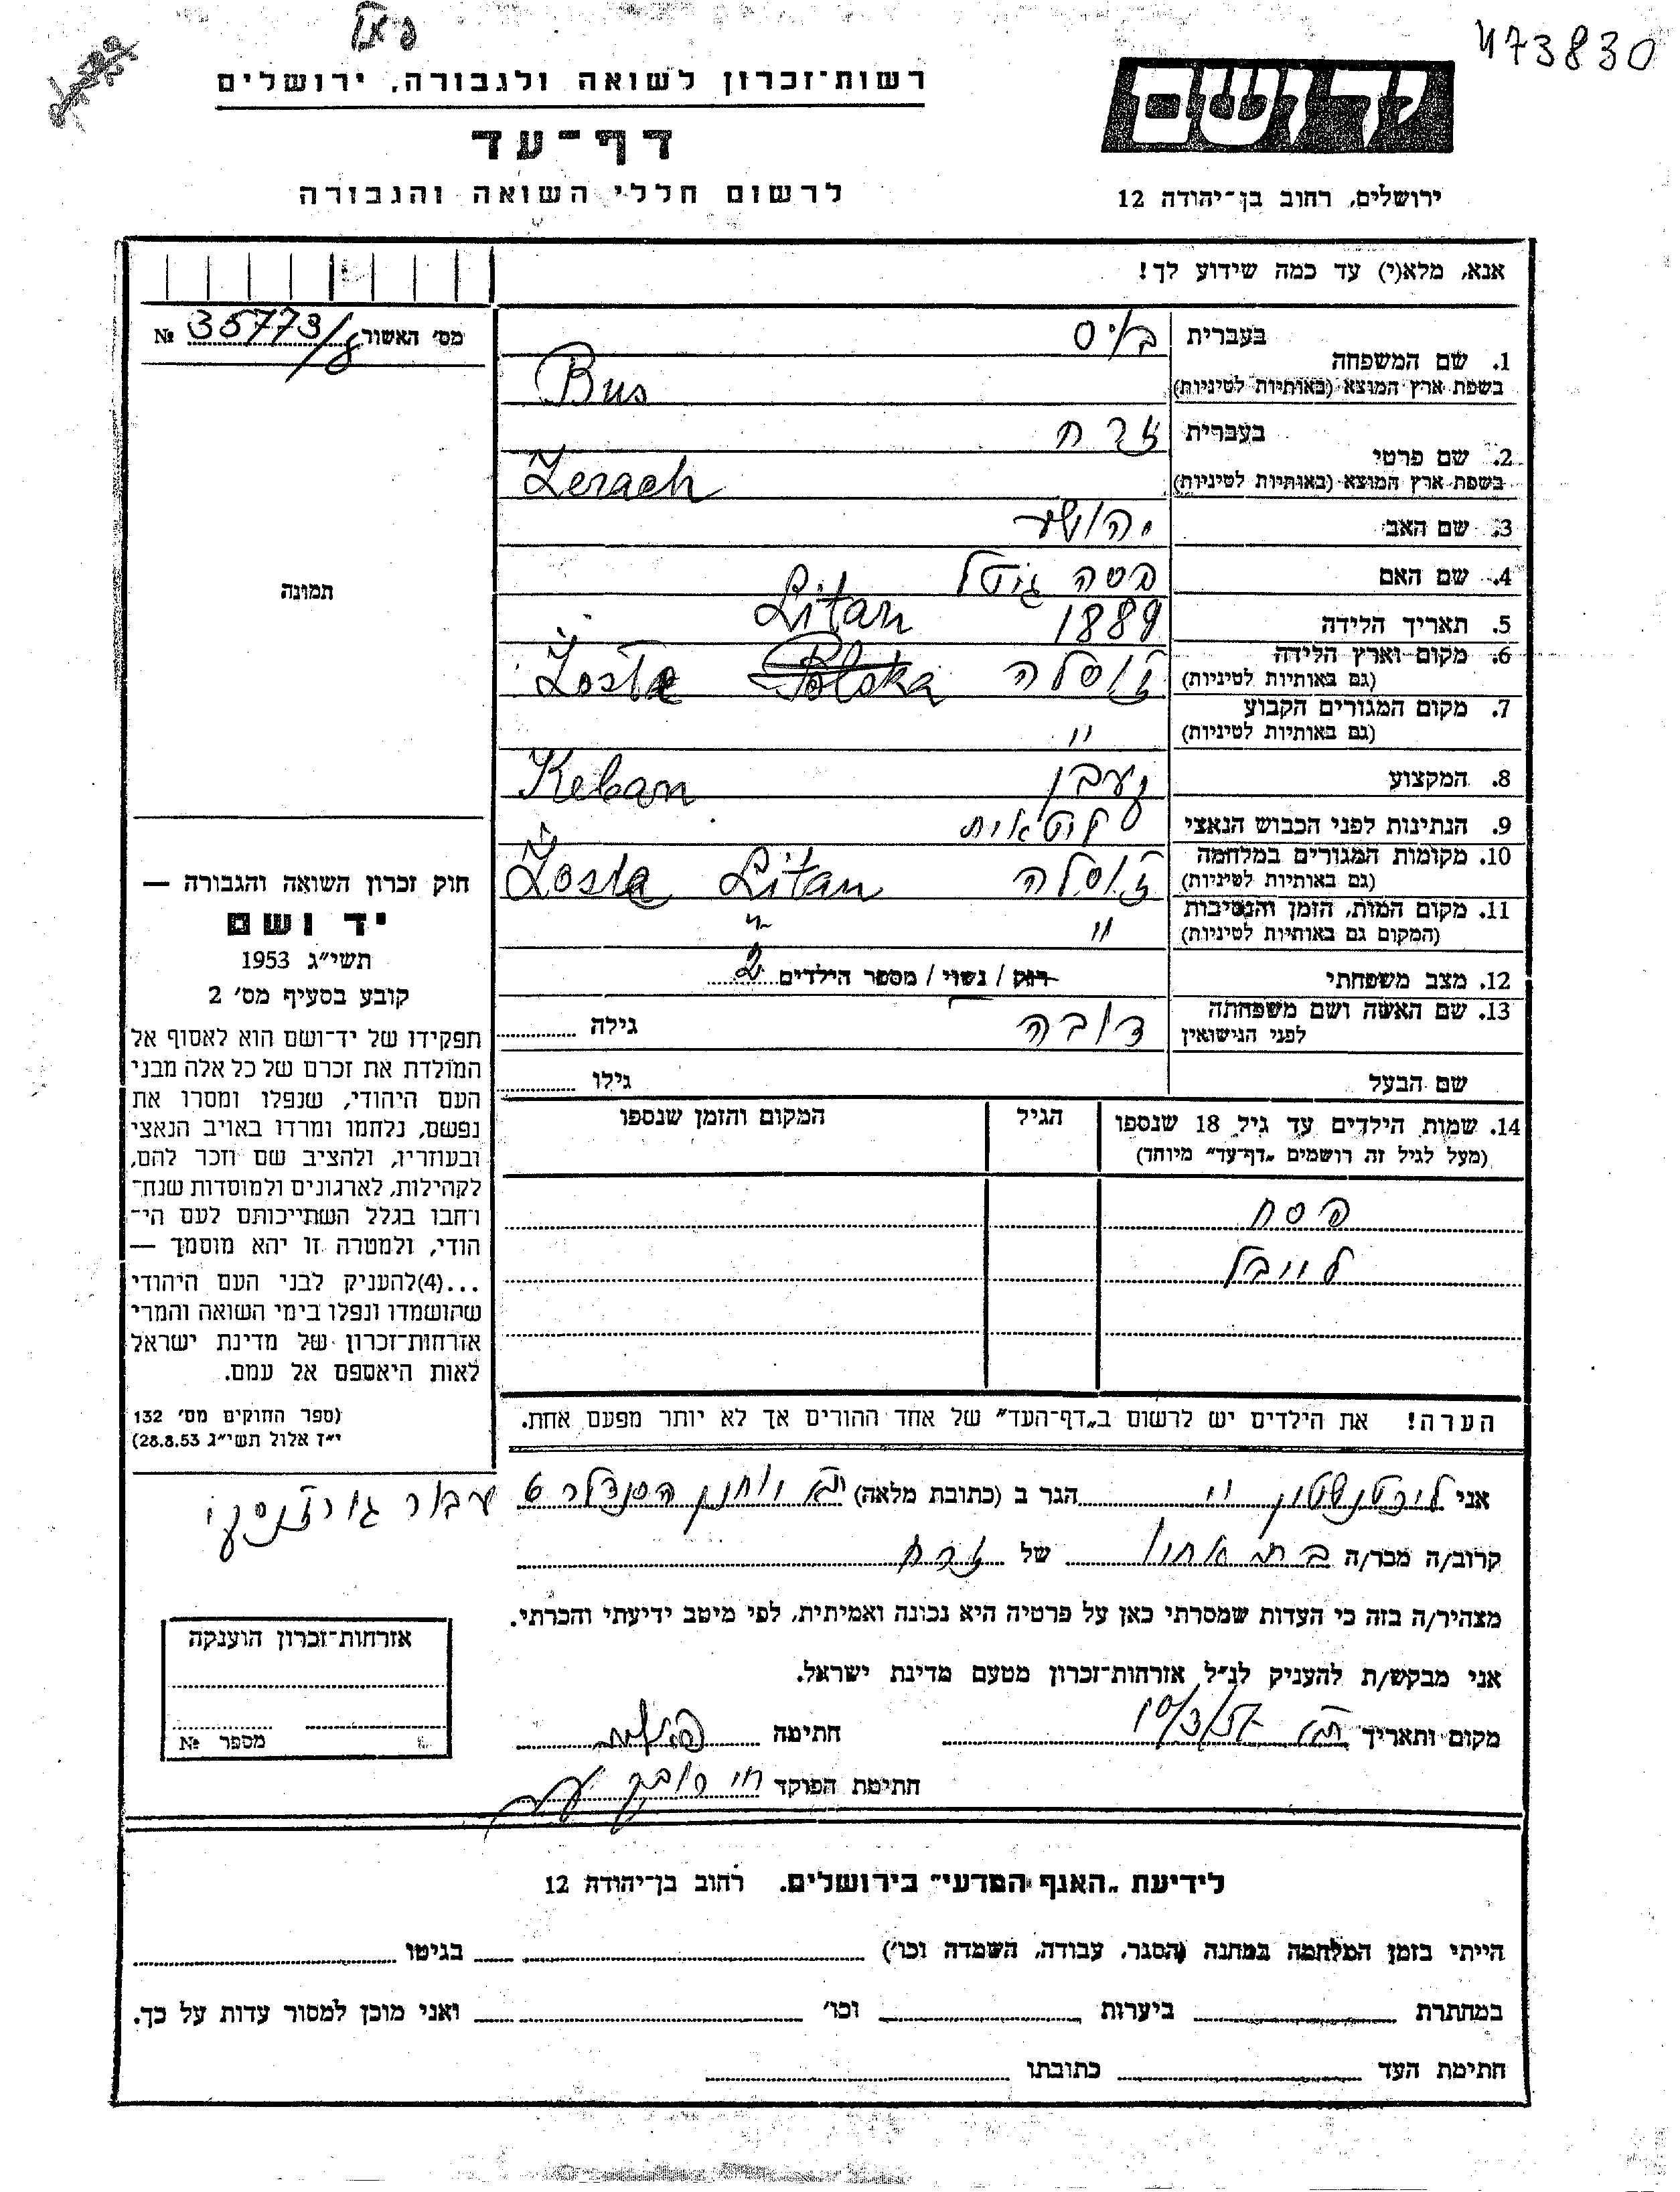 473830
יד ושם
רשות־זכרון לשואה ולגבורה, ירושלים
דף־עד
לרשום חללי השואה והגבורה
ירושלים, רחוב בן־יהודה 12
אנא, מלא(י) עד כמה שידוע לך!
מס׳ האשור 35773/8 №
1. שם המשפחה
בעברית
בשפת ארץ המוצא (באותיות לטיניות)
Bus
2. שם פרטי
בעברית זרח
בשפת ארץ המוצא (באותיות לטיניות) Zerach
3. שם האב יהושע
4. שם האם בסה גיטל
5. תאריך הלידה 1889 Litan
6. מקום וארץ הלידה
(גם באותיות לטיניות) זוסלה Polska Zosle
7. מקום המגורים הקבוע
(גם באותיות לטיניות) "
8. המקצוע Keban
9. הנתינות לפני הכבוש הנאצי ליטאית
10. מקומות המגורים במלחמה
(גם באותיות לטיניות) זוסלה Litan Zosla
11. מקום המות, הזמן והנסיבות
(המקום גם באותיות לטיניות) " "
12. מצב משפחתי רווק / נשוי / מספר הילדים 2
13. שם האשה ושם משפחתה
לפני הנישואין דובה גילה
שם הבעל גילו
14. שמות הילדים עד גיל 18 שנספו הגיל המקום והזמן שנספו
(מעל לגיל זה רושמים „דף־עד״ מיוחד)
פסח
לייבל
הערה! את הילדים יש לרשום ב„דף־העד״ של אחד ההורים אך לא יותר מפעם אחת.
תמונה
חוק זכרון השואה והגבורה —
יד ושם
תשי״ג 1953
קובע בסעיף מס׳ 2
תפקידו של יד־ושם הוא לאסוף אל
המולדת את זכרם של כל אלה מבני
העם היהודי, שנפלו ומסרו את
נפשם, נלחמו ומרדו באויב הנאצי
ובעוזריו, ולהציב שם וזכר להם,
לקהילות, לארגונים ולמוסדות שנח־
רחבו בגלל השתייכותם לעם הי־
הודי, ולמטרה זו יהא מוסמך —
...(4)להעניק לבני העם היהודי
שהושמדו ונפלו בימי השואה והמרי
אזרחות־זכרון של מדינת ישראל
לאות היאספם אל עמם.
(ספר החוקים מס׳ 132
י״ז אלול תשי״ג 28.8.53)
אני ליכטנשטין הגר ב (כתובת מלאה) ת״א יוחנן הסנדלר 6
קרוב/ה מכר/ה בת אחיו של זרח
מצהיר/ה בזה כי העדות שמסרתי כאן על פרטיה היא נכונה ואמיתית, לפי מיטב ידיעתי והכרתי.
אני מבקש/ת להעניק לנ״ל אזרחות־זכרון מטעם מדינת ישראל.
מקום ותאריך חתימה
חתימת הפוקד
אזרחות־זכרון הוענקה
מספר №
לידיעת „האגף המדעי״ בירושלים. רחוב בן־יהודה 12
הייתי בזמן המלחמה במחנה (הסגר, עבודה, השמדה וכו׳) בגיטו
במחתרת ביערות וכו׳ ואני מוכן למסור עדות על כך.
חתימת העד כתובתו